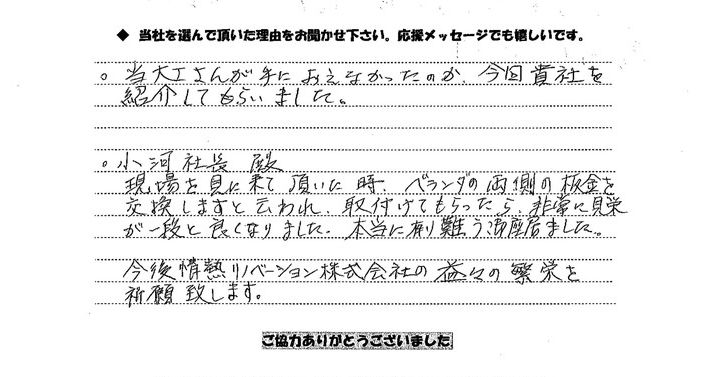 ◆ 当社を選んで頂いた理由をお聞かせ下さい。応援メッセージでも嬉しいです。
○ 当大工さんが手におえなかったのか、今回貴社を
紹介してもらいました。
○小河社長 殿
現場を見に来て頂いた時、ベランダの両側の板金を
交換しますと云われ、取付けてもらったら、非常に見栄
が一段と良くなりました。本当に有り難う御座居ました。
今後情熱リノベーション株式会社の益々の繁栄を
祈願致します。
ご協力ありがとうございました